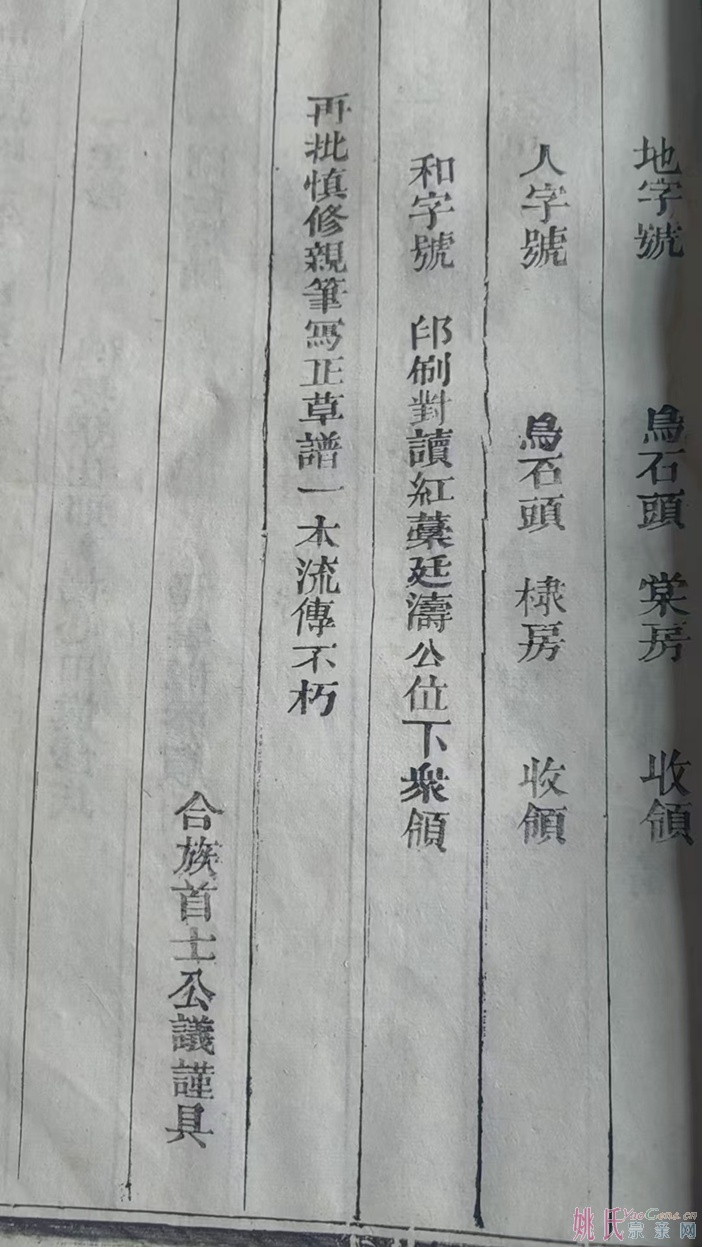 地字號 烏石頭 棠房 收領
人字號 烏石頭 棣房 收領
和字號 印刷對讀紅藁廷濤公位下衆領
再批慎修親筆寫正草譜一本流傳不朽
合族首士公議謹具
姚氏宗亲网
YaoGens.cn